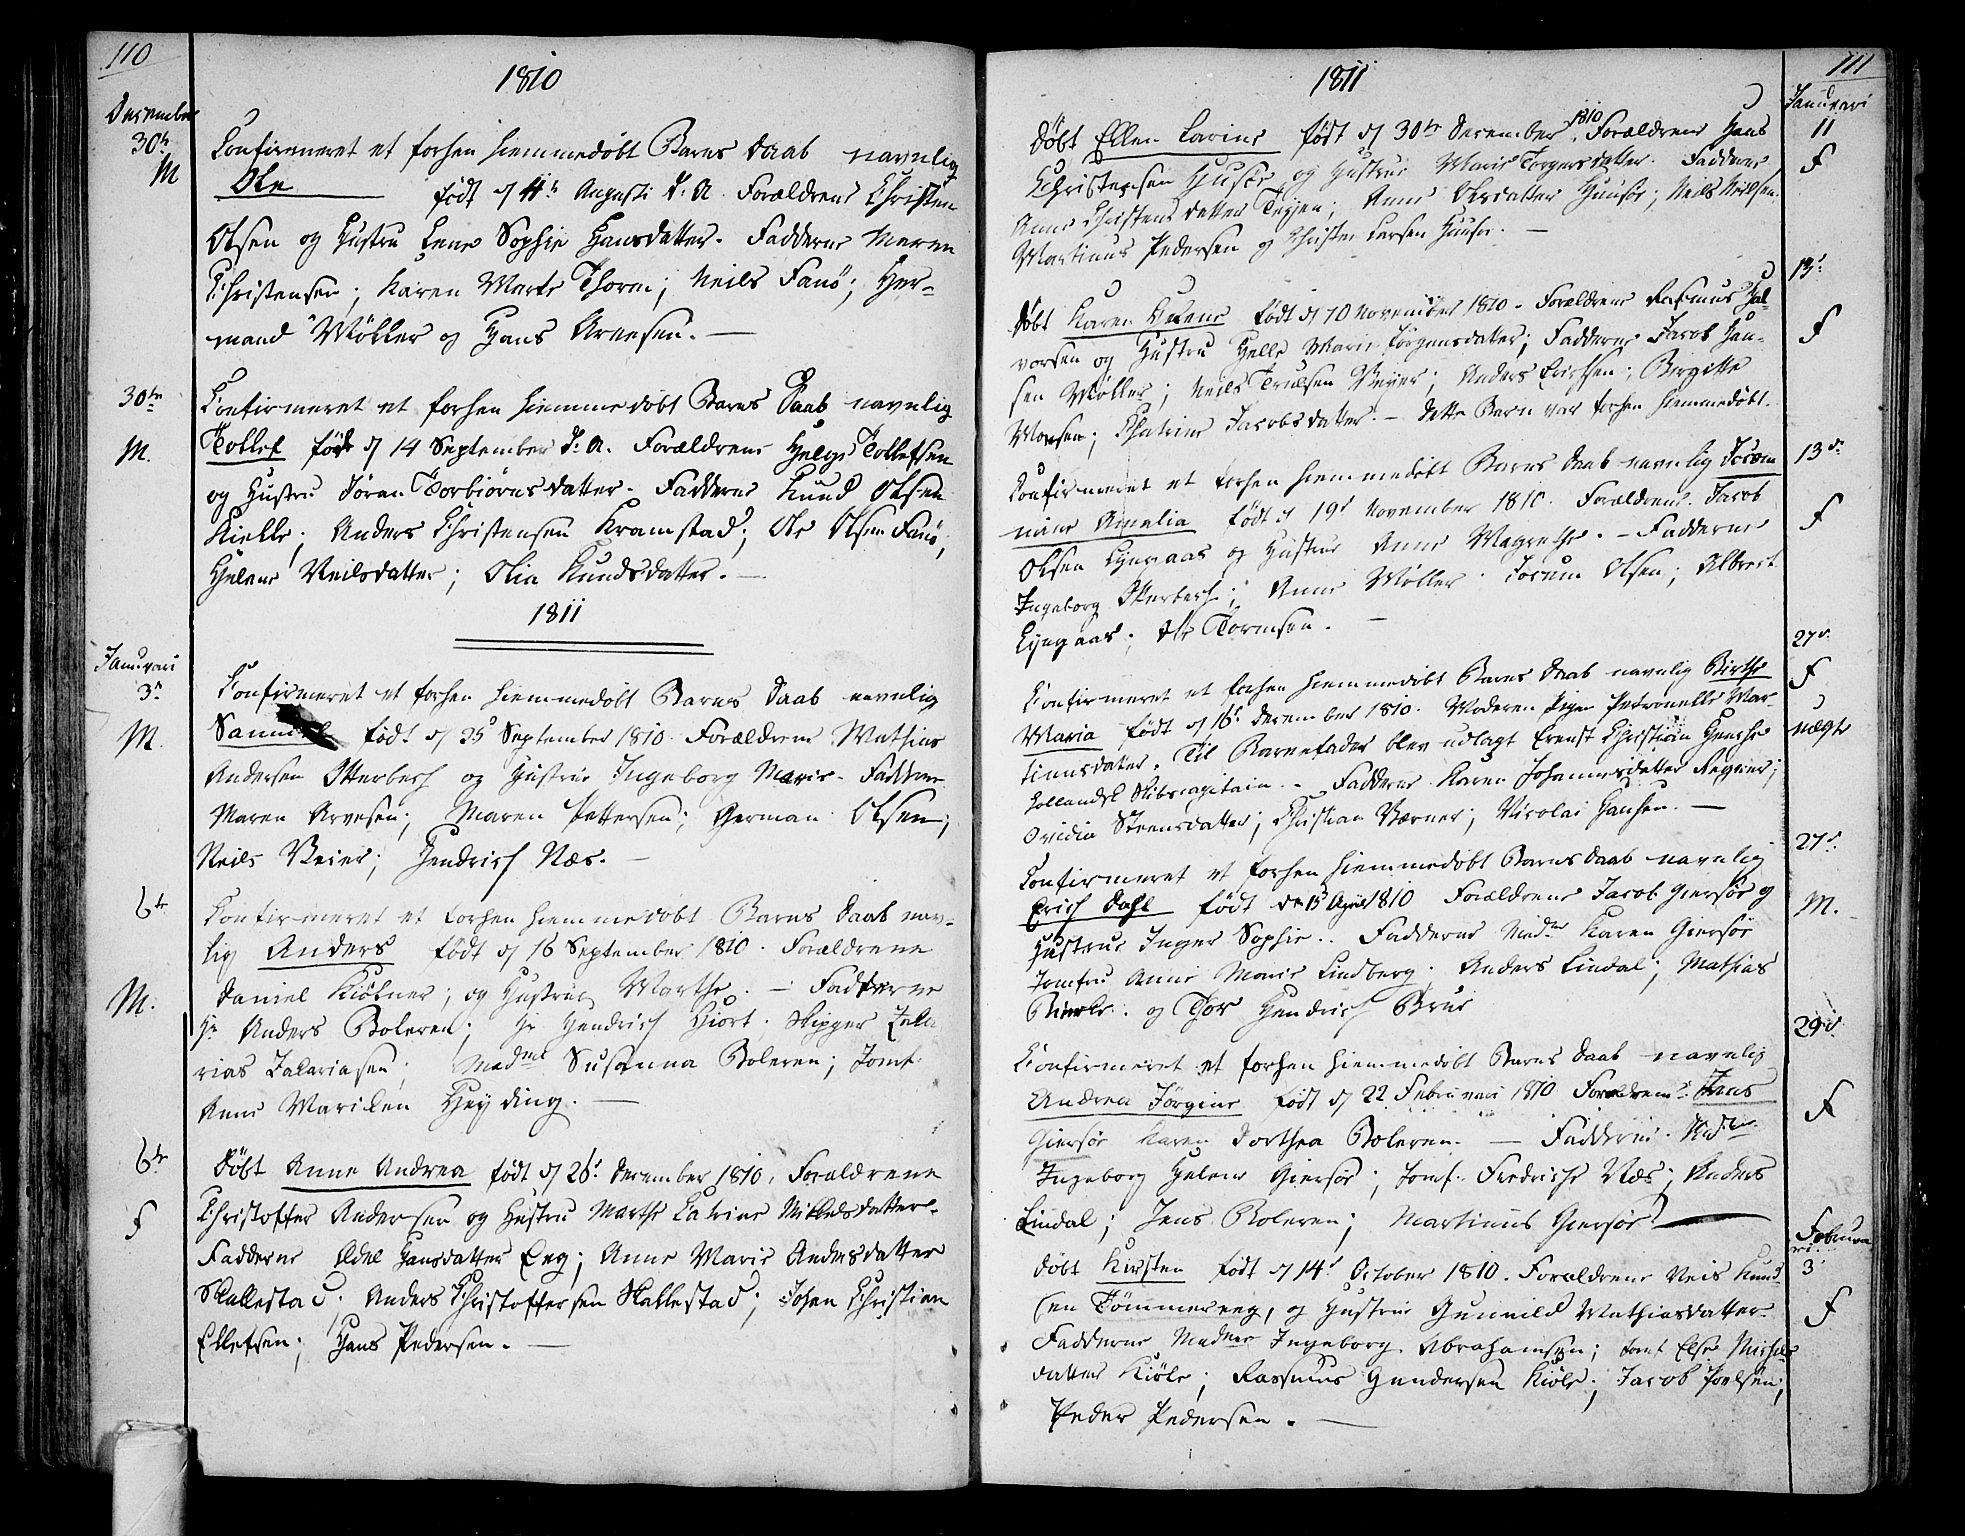 110
1810
December
30te
M
Confirmeret et forhen hiemmedøbt Barns Daab navnlig
Ole født d 4de Augusti d. A. Forældrene Christen
Olsen og Hustru Lene Sophie Hansdatter. Fadderne Maren
Christensen; Karen Marte Thorm; Neils Fanö; Her-
mand Møller og Hans Arvesen. —
30te
M.
Confirmeret et forhen hiemmedøbt Barns Daab navnlig
Tollef født d 14 September d. A. Forældrene Helge Tollefsen
og Hustru Jøran Torbiørnsdatter. Fadderne Knud Olsen
Kielle; Anders Christensen Kramstad; Ole Olsen Fanö;
Helene Neilsdatter; Olia Knudsdatter. —
1811
Januari
3d
M.
Confirmeret et forhen hiemmedøbt Barns Daab navnlig
Samuel født d 25 September 1810. Forældrene Mathias
Andersen Otterbech og Hustrue Ingeborg Marie. Fadderne
Maren Arvesen; Maren Pettersen; German Olsen;
Neils Beier; Hendrich Næs. —
6te
M.
Confirmeret et forhen hiemmedøbt Barns Daab nav-
lig Anders født d 16 September 1810. Forældrene
Daniel Kiølner; og Hustrue Marthe. — Fadderne
Hr Anders Boleren; Hr Hendrich Hiort. Skipper Zala
rias Zalariasen; Madme Susanna Boleren; Jomf.
Anne Mariken Heyding. —
6te
f
Døbt Anne Andrea født d 26d December 1810. Forældrene
Christoffer Andersen og Hustru Marthe Catrine Nilledsdatter.
Fadderne Eldel Hansdatter Eeg; Anne Marie Andersdatter
Skallestad; Anders Christoffersen Skallestad; Johan Christian
Ellefsen; Hans Pedersen. —
1811
111
Januari
11
f
Døbt Ellen Lavine født d 30te December 1810. Forældrene Hans
Christensen Husøe og Hustrue Marie Torgersdatter. Fadderne
Anne Christensdatter Teyen; Anne Olesdatter Huusøe; Neils Neilsen
Martinus Pedersen og Christen Larsen Huusøe. —
13d
f
Døbt Karen Helene født d 10 November 1810. Forældrene Rasmus Hal-
vorsen og Hustru Helle Marie Jørgensdatter; Fadderne Jacob Han-
sen Møller; Neils Trulsen Beyer; Anders Erichsen; Birgitte
Monsen; Chatrine Jacobsdatter. — Dette Barn var forhen hiemmedøbt.
13de
f
Confirmeret et forhen hiemmedøbt Barns Daab navnlig Josem
nine Amalia født d 19d November 1810. Forældrene Jacob
Olsen Lyngaas og Hustrue Anne Magrethe. — Fadderne
Ingeborg Otterbech; Anne Møller. Josum Olsen; Albrect
Lyngaas; Ole Tormsen. —
27d
f
uægte
Confirmeret et forhen hiemmedøbt Barns Daab navnlig Birthe
Maria født d 16d December 1810. Moderen Pigen Petronelle Mar-
tinusdater. Til Barnefader blev udlagt Ernst Christian
hollandsk Skibscapitain. — Fadderne Karen Johannesdatter
Ovidia Steensdatter; Christian Værner; Nicolai Hansen. —
27d
M.
Confirmeret et forhen hiemmedøbt Barns Daab navnlig
Erich Dahl født den 15d April 1810 Forældrene Jacob Giersøe og
Hustrue Inger Sophie.. Fadderne Madme Karen Giersöe
Jomfru Anne Marie Lindberg. Anders Lindal; Mathias
og Thor Hendrich Brue
29d
f
Confirmeret et forhen hiemmedøbt Barns Daab navnlig
Andrea Jørgine født d 22 Februari 1810 Forældrene: Jens
Giersøe Karen Dorthea Boleren. — Fadderne. Madme
Ingeborg Helene Giersøe; Jomf. Fredriche Næs; Anders
Lindal; Jens Boleren; Martinus Giersøe —
Februa
ri
3
f
Døbt Kirsten født d 14d October 1810. Forældrene Neis Knud
sen Tømmereeg, og Hustrue Gunnild Mathiasdatter
Fadderne Madme Ingeborg Abrahamsen; Jomf Else Nichels
datter Kiøle; Rassmus Gundersen Kiøle; Jacob Poelsen;
Peder Pedersen. —